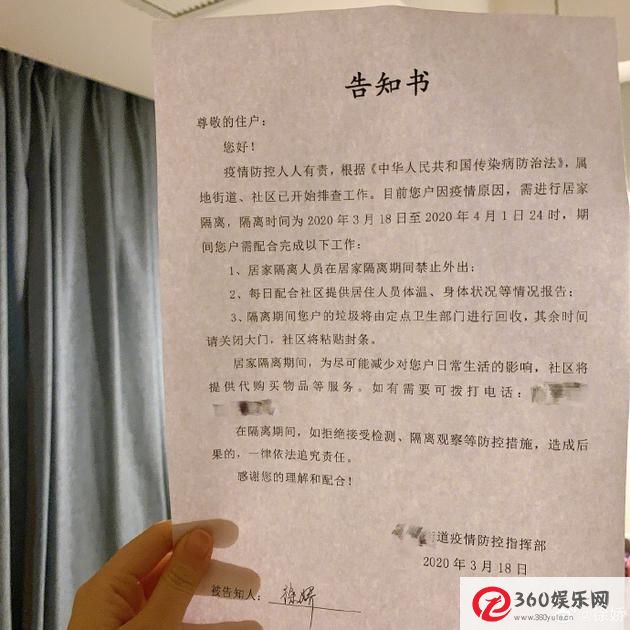 告知书
尊敬的住户：
您好！
疫情防控人人有责，根据《中华人民共和国传染病防治法》，属
地街道、社区已开始排查工作。目前您户因疫情原因，需进行居家
隔离，隔离时间为 2020 年 3 月 18 日至 2020 年 4 月 1 日 24 时，期
间您户需配合完成以下工作：
1、居家隔离人员在居家隔离期间禁止外出；
2、每日配合社区提供居住人员体温、身体状况等情况报告；
3、隔离期间您户的垃圾将由定点卫生部门进行回收，其余时间
请关闭大门，社区将粘贴封条。
居家隔离期间，为尽可能减少对您户日常生活的影响，社区将
提供代购买物品等服务。如有需要可拨打电话：
在隔离期间，如拒绝接受检测、隔离观察等防控措施，造成后
果的，一律依法追究责任。
感谢您的理解和配合！
街道疫情防控指挥部
2020 年 3 月 18 日
被告知人：徐娇
360娱乐网
www.360yule.cn